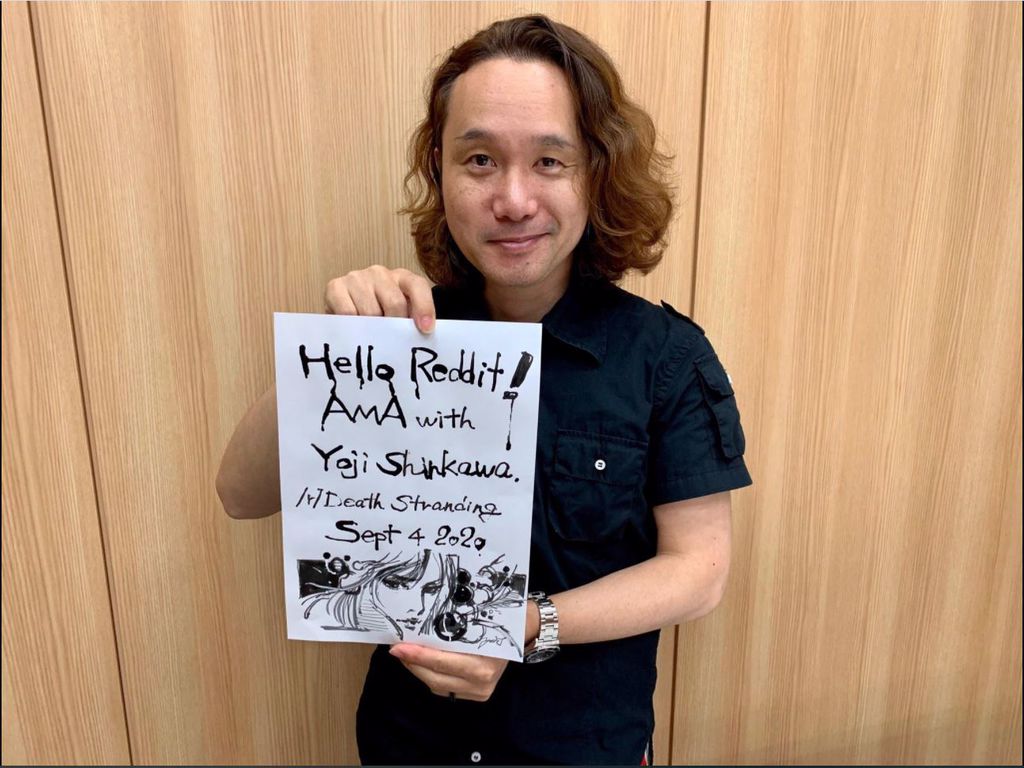 Hello Reddit!
AMA with
Yoji Shinkawa.
/r/Death Stranding
Sept 4 2020